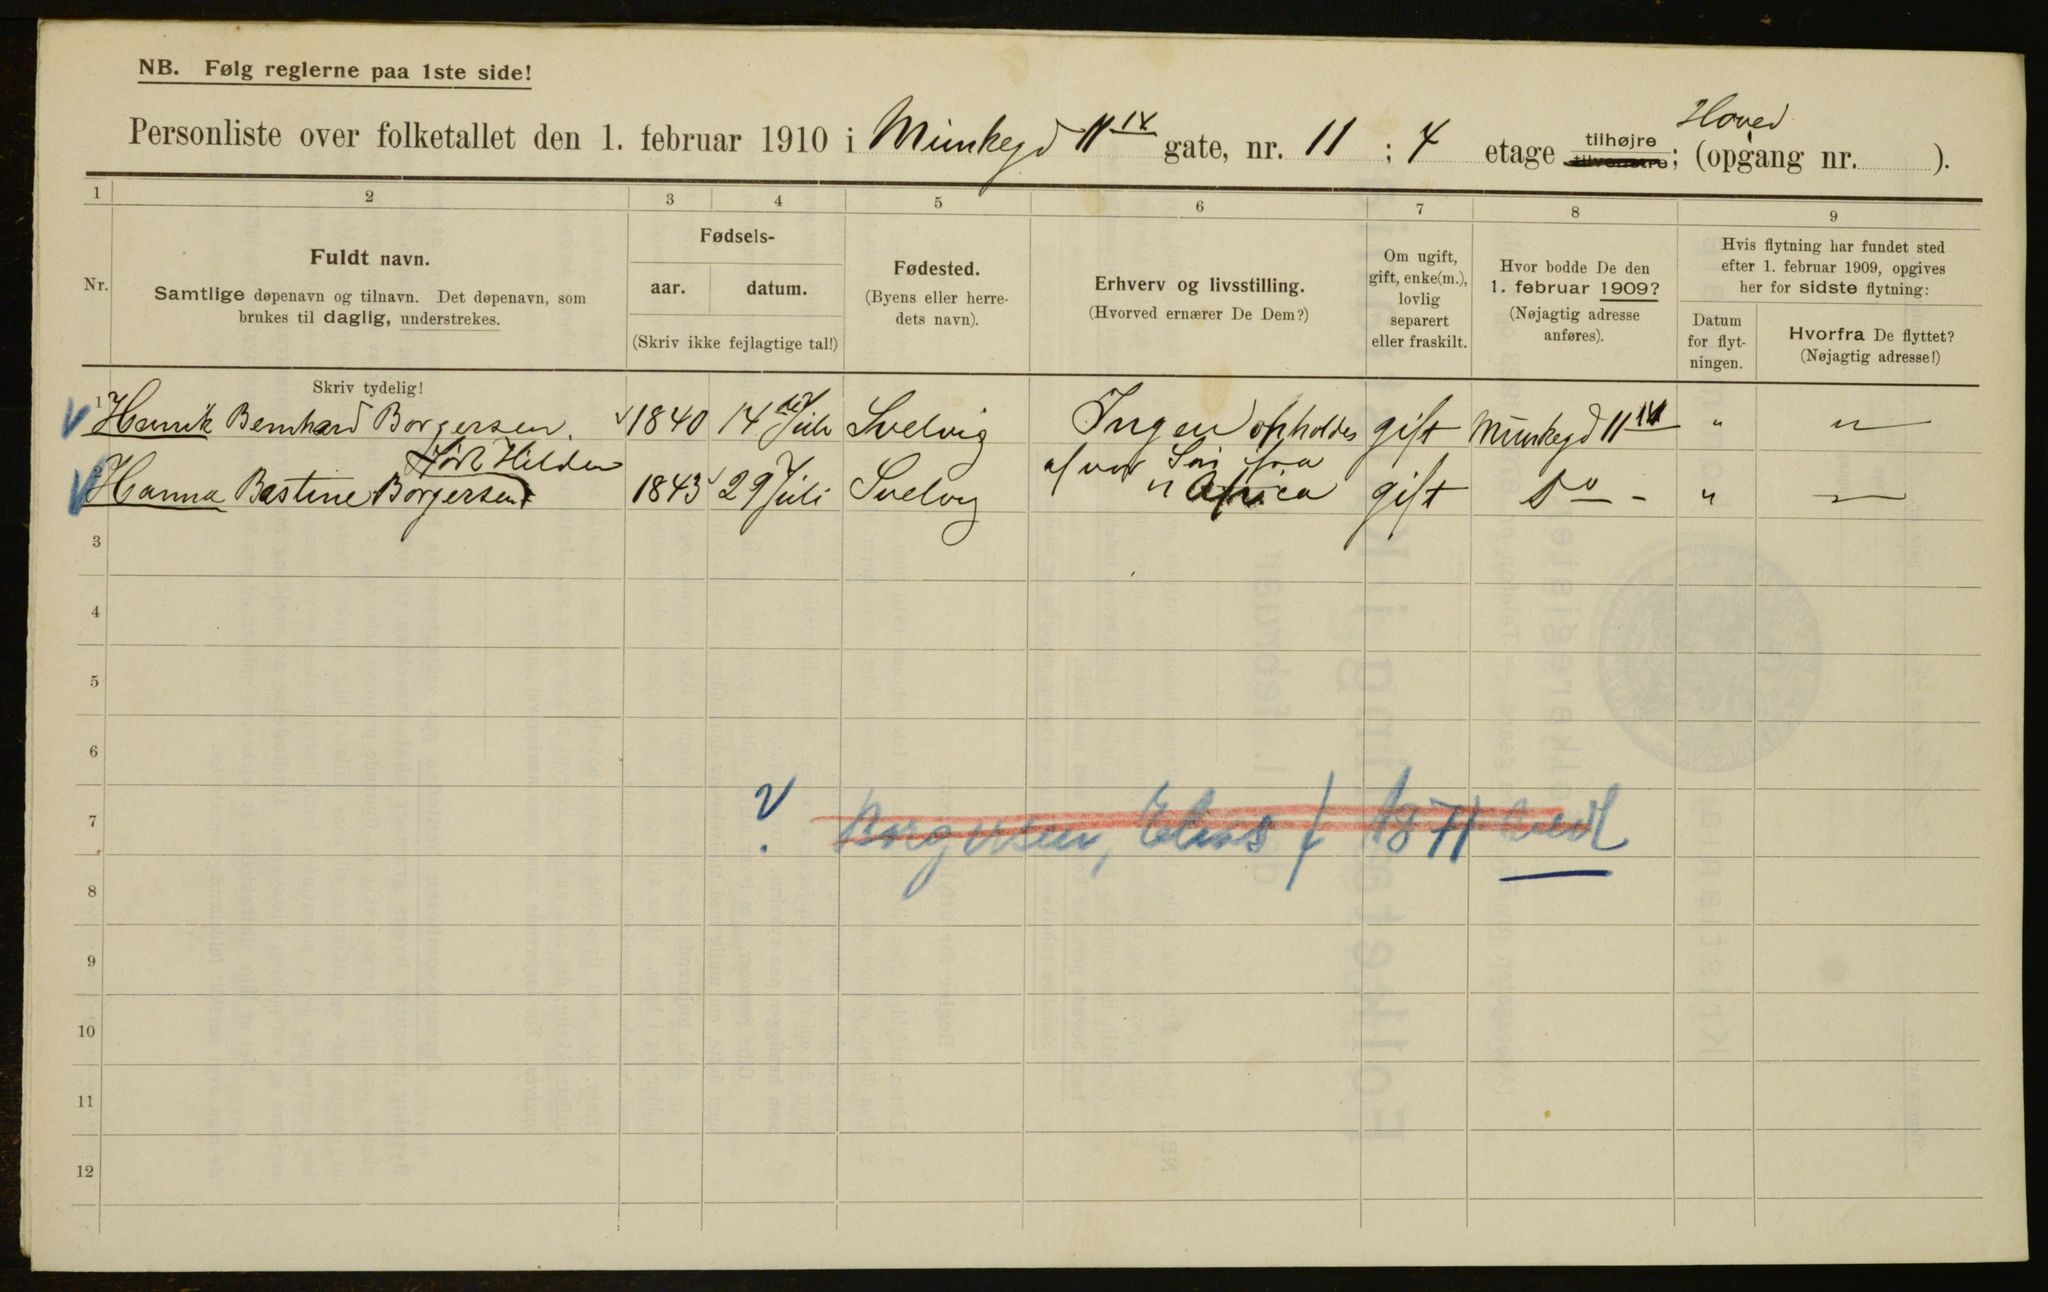 NB. Følg reglerne paa 1ste side!
Hoved
Personliste over folketallet den 1. februar 1910 i Munkegd 11 gate, nr. 11 ; 4 etage tilhøjre tilvenstre; (opgang nr. ).
1 2 3 4 5 6 7 8 9
Nr.
Fuldt navn.
Samtlige døpenavn og tilnavn. Det døpenavn, som
brukes til daglig, understrekes.
Skriv tydelig!
Fødsels-
aar. datum.
(Skriv ikke fejlagtige tal!)
Fødested.
(Byens eller herre-
dets navn).
Erhverv og livsstilling.
(Hvorved ernærer De Dem?)
Om ugift,
gift, enke(m.),
lovlig
separert
eller fraskilt.
Hvor bodde De den
1. februar 1909?
(Nøjagtig adresse
anføres).
Hvis flytning har fundet sted
efter 1. februar 1909, opgives
her for sidste flytning:
Datum
for flyt-
ningen.
Hvorfra De flyttet?
(Nøjagtig adresse!)
1 Henrik Bernhard Borgersen. 1840 14 Juli Svelvig Ingen opholdes gift Munkegd 11 " "
født Hilden af vor Søn fra
2 Hanna Bastine Borgersen 1843 29 Juli Svelvig " Africa gift Do - " "
3
4
5
6
7 ? Borgersen, Elias f 1871
8
9
10
11
12